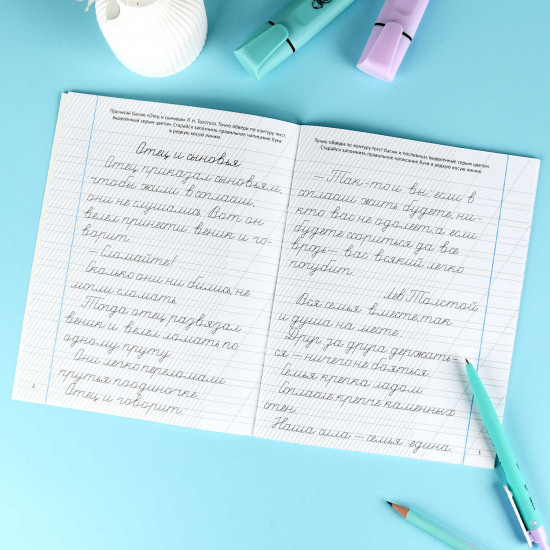 Прочитай басню «Отец и сыновья» Л. Н. Толстого. Точно обведи по контуру текст,
выделенный серым цветом. Старайся запомнить правильное написание букв
в редкую косую линию.
Отец и сыновья
Отец приказал сыновьям,
чтобы жили в согласии,
они не слушались. Вот он
велел принести веник и го-
ворит:
– Сломайте!
Сколько они ни бились, не
могли сломать.
Тогда отец развязал
веник и велел ломать по
одному пруту.
Они легко переломали
прутья поодиночке.
Отец и говорит:
Точно обведи по контуру текст басни и пословицы, выделенные серым цветом.
Старайся запомнить правильное написание букв в редкую косую линию.
– Так-то и вы: если в
согласии жить будете, ни-
кто вас не одолеет, а если
будете ссориться да всё
врозь – вас всякий легко
погубит.
Лев Толстой
Вся семья вместе, так
и душа на месте.
Друг за друга держать-
ся – ничего не бояться.
Семья крепка ладом.
Согласие крепче каменных
стен.
Наша сила – семья едина.